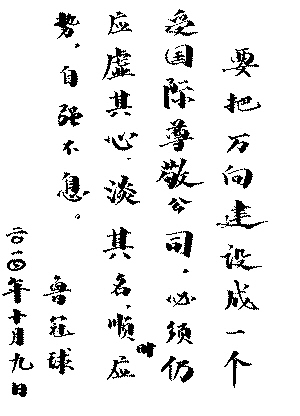 要把万向建设成一个
受国际尊敬公司，必须仍
应虚其心，淡其名，顺时应
势，自强不息。
鲁冠球
二〇一四年十月九日